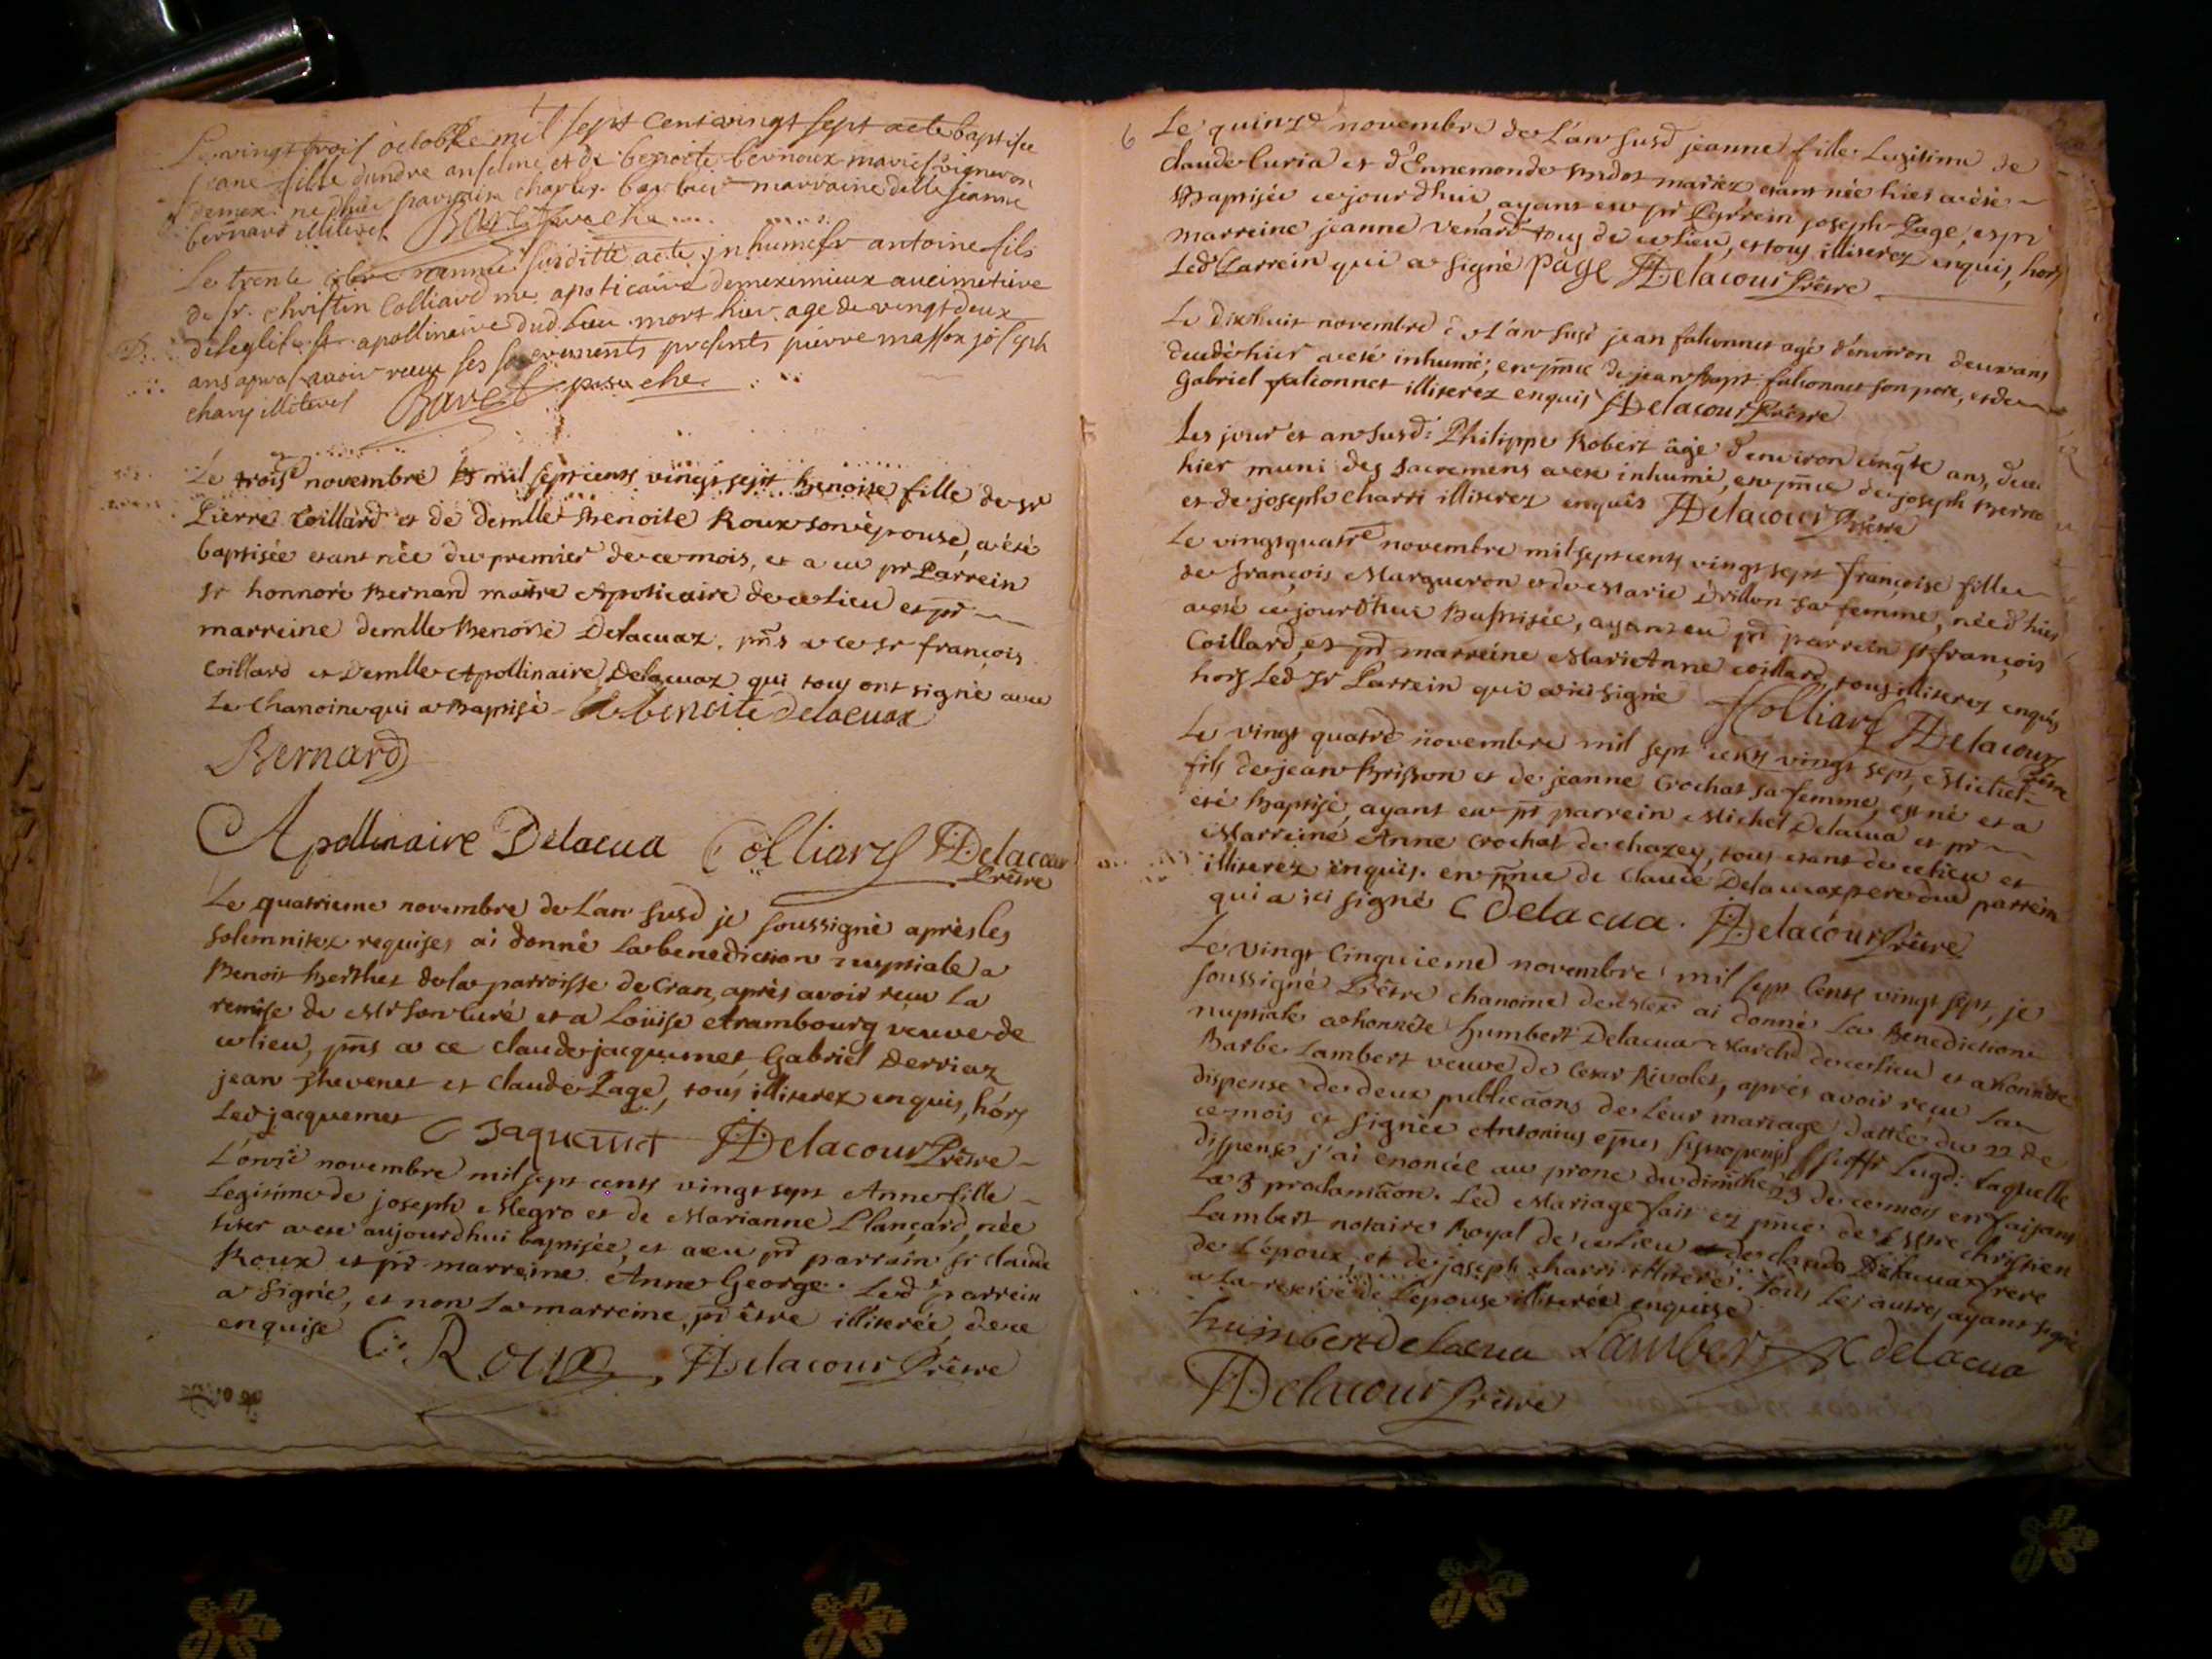 Le vingt trois octobre mil sept cent vingt sept a ete baptisee
jeane fille dandre anselme et de benoite bernoux maries vigneron
de mex. parrain charles barbier marraine delle jeanne
bernard illiterés Bavet
Le trente 8bre l'année susditte a ete inhumé sr antoine fils
de sr. christin Colliard me apoticaire de meximieux au cimetiere
de leglise st apollinaire dud lieu mort hier age de vingt deux
ans apres avoir receu ses sacrements presents pierre masson joseph
chary illiterés Bavet
Le trois novembre mil sept cents vingt sept Benoite fille de sr
Pierre Coillard et de demlle Benoite Roux son épouse, a été
baptisée etant née du premier de ce mois, et a eu pr Parrein
sr honnoré Bernard maitre Apoticaire de ce lieu et pr
marreine demlle Benoite Delacuaz. pns a ce sr françois
Coillard et Demlle Apollinaire Delacuaz qui tous ont signé avec
Le Chanoine qui a Baptisé benoite delacuaz
Bernard
Apollinaire Delacua Colliard Delacour
Prêtre
Le quatrieme novembre de L'an susd je soussigné après les
solemnitez requises ai donné la benediction nuptiale a
Benoit Berthet de la parroisse de Cran, après avoir reçu la
remise de Mr son Curé et a Loüise Arambourg veuve de
ce lieu, pns a ce claude jacquemet, Gabriel Derriaz
jean thevenet et claude Page, tous illiterez enquis, hors
Led jacquemet C Jaquemet Delacour Prêtre
L'onze novembre mil sept cents vingt sept Anne fille
Legitime de joseph Megro et de Marianne Plançard, née
hier a eté aujourdhui baptisée, et a eu pr parrain sr claude
Roux et pr marreine Anne George. Led sr parrein
a signé, et non la marreine, pr être illiterée, de ce
enquise C. Roux Delacour Prêtre
6 Le quinze novembre de L'an susd jeanne fille Legitime de
claude Curia et d'Ennemonde mariez etant née hier a été
Baptisée ce jourdhui, ayant eu pr Parrein joseph Page, et pr
marreine jeanne Venard tous de ce lieu, et tous illiterez enquis, hors
Led Parrein qui a signé page Delacour Prêtre
Le dixhuit novembre de L'an susd jean falconnet agé d'environ deux ans
decedé hier a eté inhumé, en pnce de jean Bapt. falconnet son pere, et de
Gabriel falconnet illiterez enquis Delacour Prêtre
Les jour et an susd: Philippe Robert âgé d'environ cinqte ans, decedé
hier muni des sacremens a eté inhumé, en pnce de joseph
et de joseph charri illiterez enquis Delacour Prêtre
Le vingtquatre novembre mil sept cents vingt sept françoise fille
de françois Margueron et de Marie Drillon sa femme, née d'hier
a eté ce jourd'hui Baptisée, ayant eu pr parrein sr françois
Coillard, et pr marreine Marie Anne coillard, tous illiterez enquis
hors Led sr Parrein qui a ici signé Colliard Delacour
Prêtre
Le vingt quatre novembre mil sept cents vingt sept, Michel
fils de jean Brisson et de jeanne Crochat sa femme, est né et a
eté Baptisé, ayant eu pr parrein Michel Delacua et pr
Marreine Anne Crochat de chazey, tous etant de ce lieu et
illiterez enquis. en pnce de claude Delacuaz pere dud parrein
qui a ici signé C delacua. Delacour Prêtre
Le vingt Cinquieme novembre mil sept Cents vingt sept, je
soussigné Prêtre chanoine de Mex ai donné La Benediction
nuptiale a honnête humbert Delacua Marchd de ce lieu et a honnête
Barbe Lambert veuve de Cesar Rivolet, après avoir reçu La
dispense de deux publicaons de Leur mariage dattée du 22 de
ce mois et signée Antonius epus suffr Lugd: Laquelle
dispense j'ai enoncée au prone du dimche 23 de ce mois en faisant
La 3 proclamaon. Led Mariage fait en pnce de christien
Lambert notaire Royal de ce lieu de claude Delacuaz frere
de l'époux, et de joseph charri illiteré. Tous Les autres ayant signé
a la reserve de L'epouse illiterée enquise
humbert delacua Lambert C delacua
Delacour Prêtre